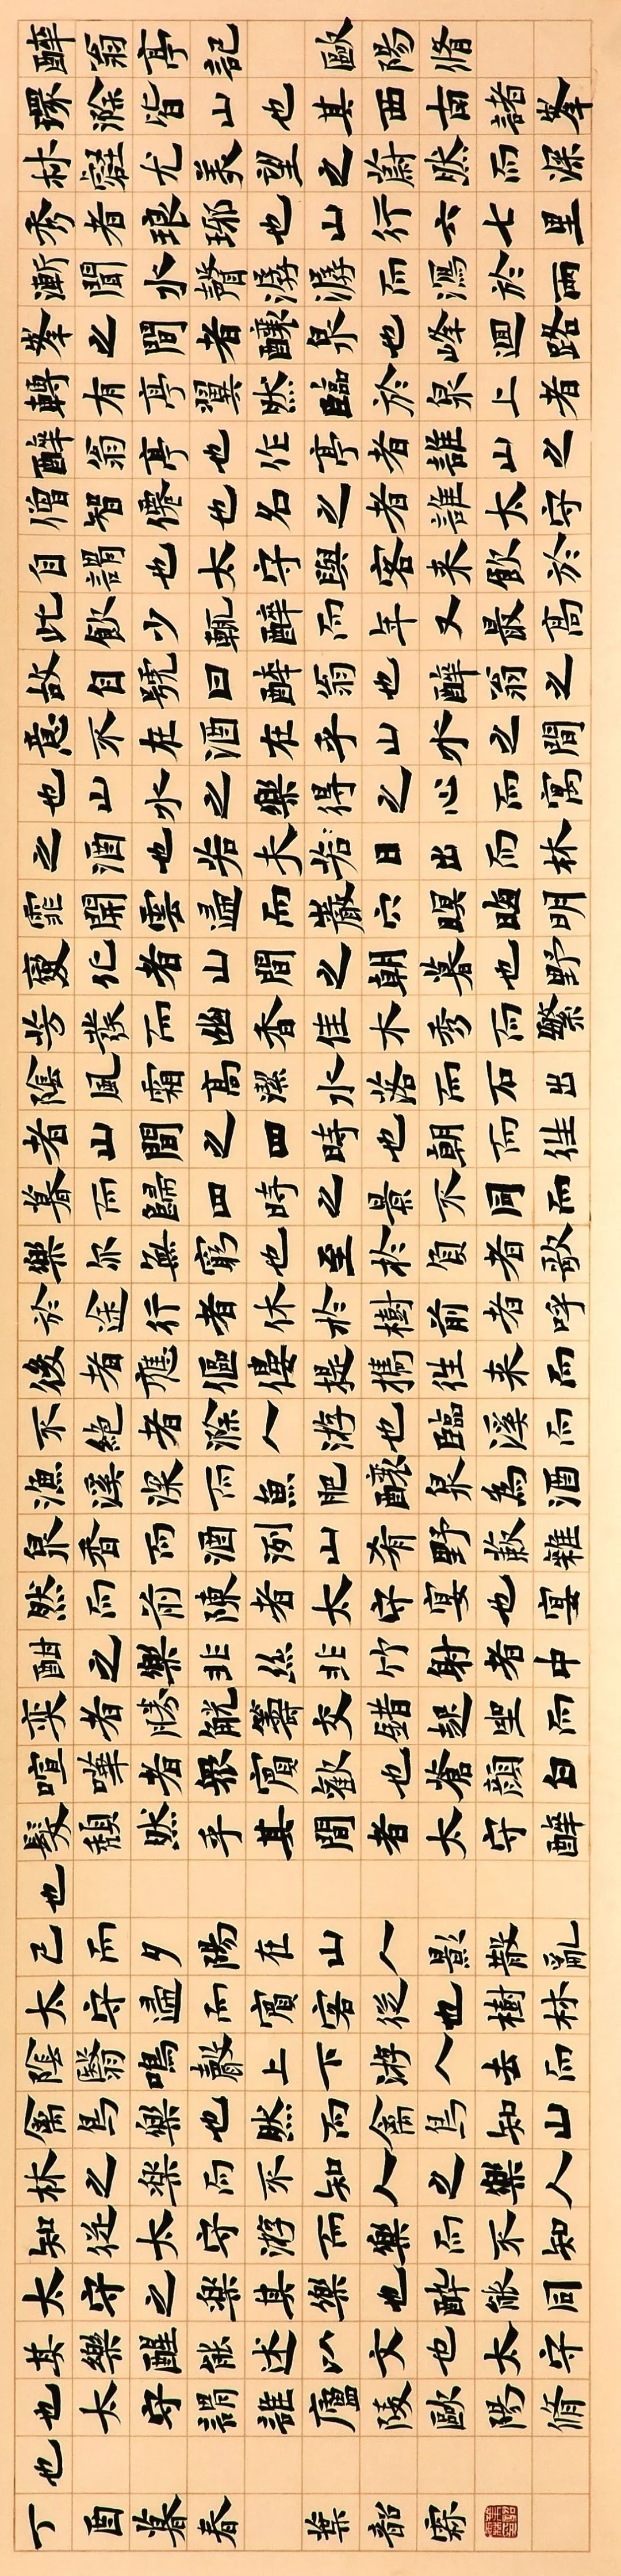 醉翁亭記 歐陽脩
環滁皆山也其西南諸峯
林壑尤美望之蔚然而深
秀者琅琊也山行六七里
漸聞水聲潺潺而瀉於兩
峯之間者釀泉也峰迴路
轉有亭翼然臨於泉上者
醉翁亭也作亭者誰山之
僧智僊也名之者誰太守
自謂也太守與客来飲於
此飲少輒醉而年又最高
故自號曰醉翁也醉翁之
意不在酒在乎山水之間
也山水之樂得之心而寓
之酒也若夫若日出而林
霏開雲歸而巖穴暝晦明
變化者山間之朝暮也野
芳發而幽香佳木秀而繁
陰風霜高潔水落而石出
者山間之四時也朝而往
暮而歸四時之景不同而
樂亦無窮也至於負者歌
於途行者休於樹前者呼
後者應傴僂提攜往来而
不絕者滁人游也臨溪而
漁溪深而魚肥釀泉為酒
泉香而酒洌山肴野蔌雜
然而前陳者太守宴也宴
酣之樂非絲非竹射者中
奕者勝觥籌交錯起坐而
喧嘩者衆賓歡也蒼顏白
髮頹然乎其間者太守醉
也
已而夕陽在山人影散亂
太守歸而賓客從也樹林
陰翳鳴聲上下游人去而
禽鳥樂也然而禽鳥知山
林之樂而不知人之樂人
知從太守游而樂而不知
太守之樂其樂也醉能同
其樂醒能述以文也太守
也太守謂誰廬陵歐陽脩
也
丁酉暮春 葉韶霖